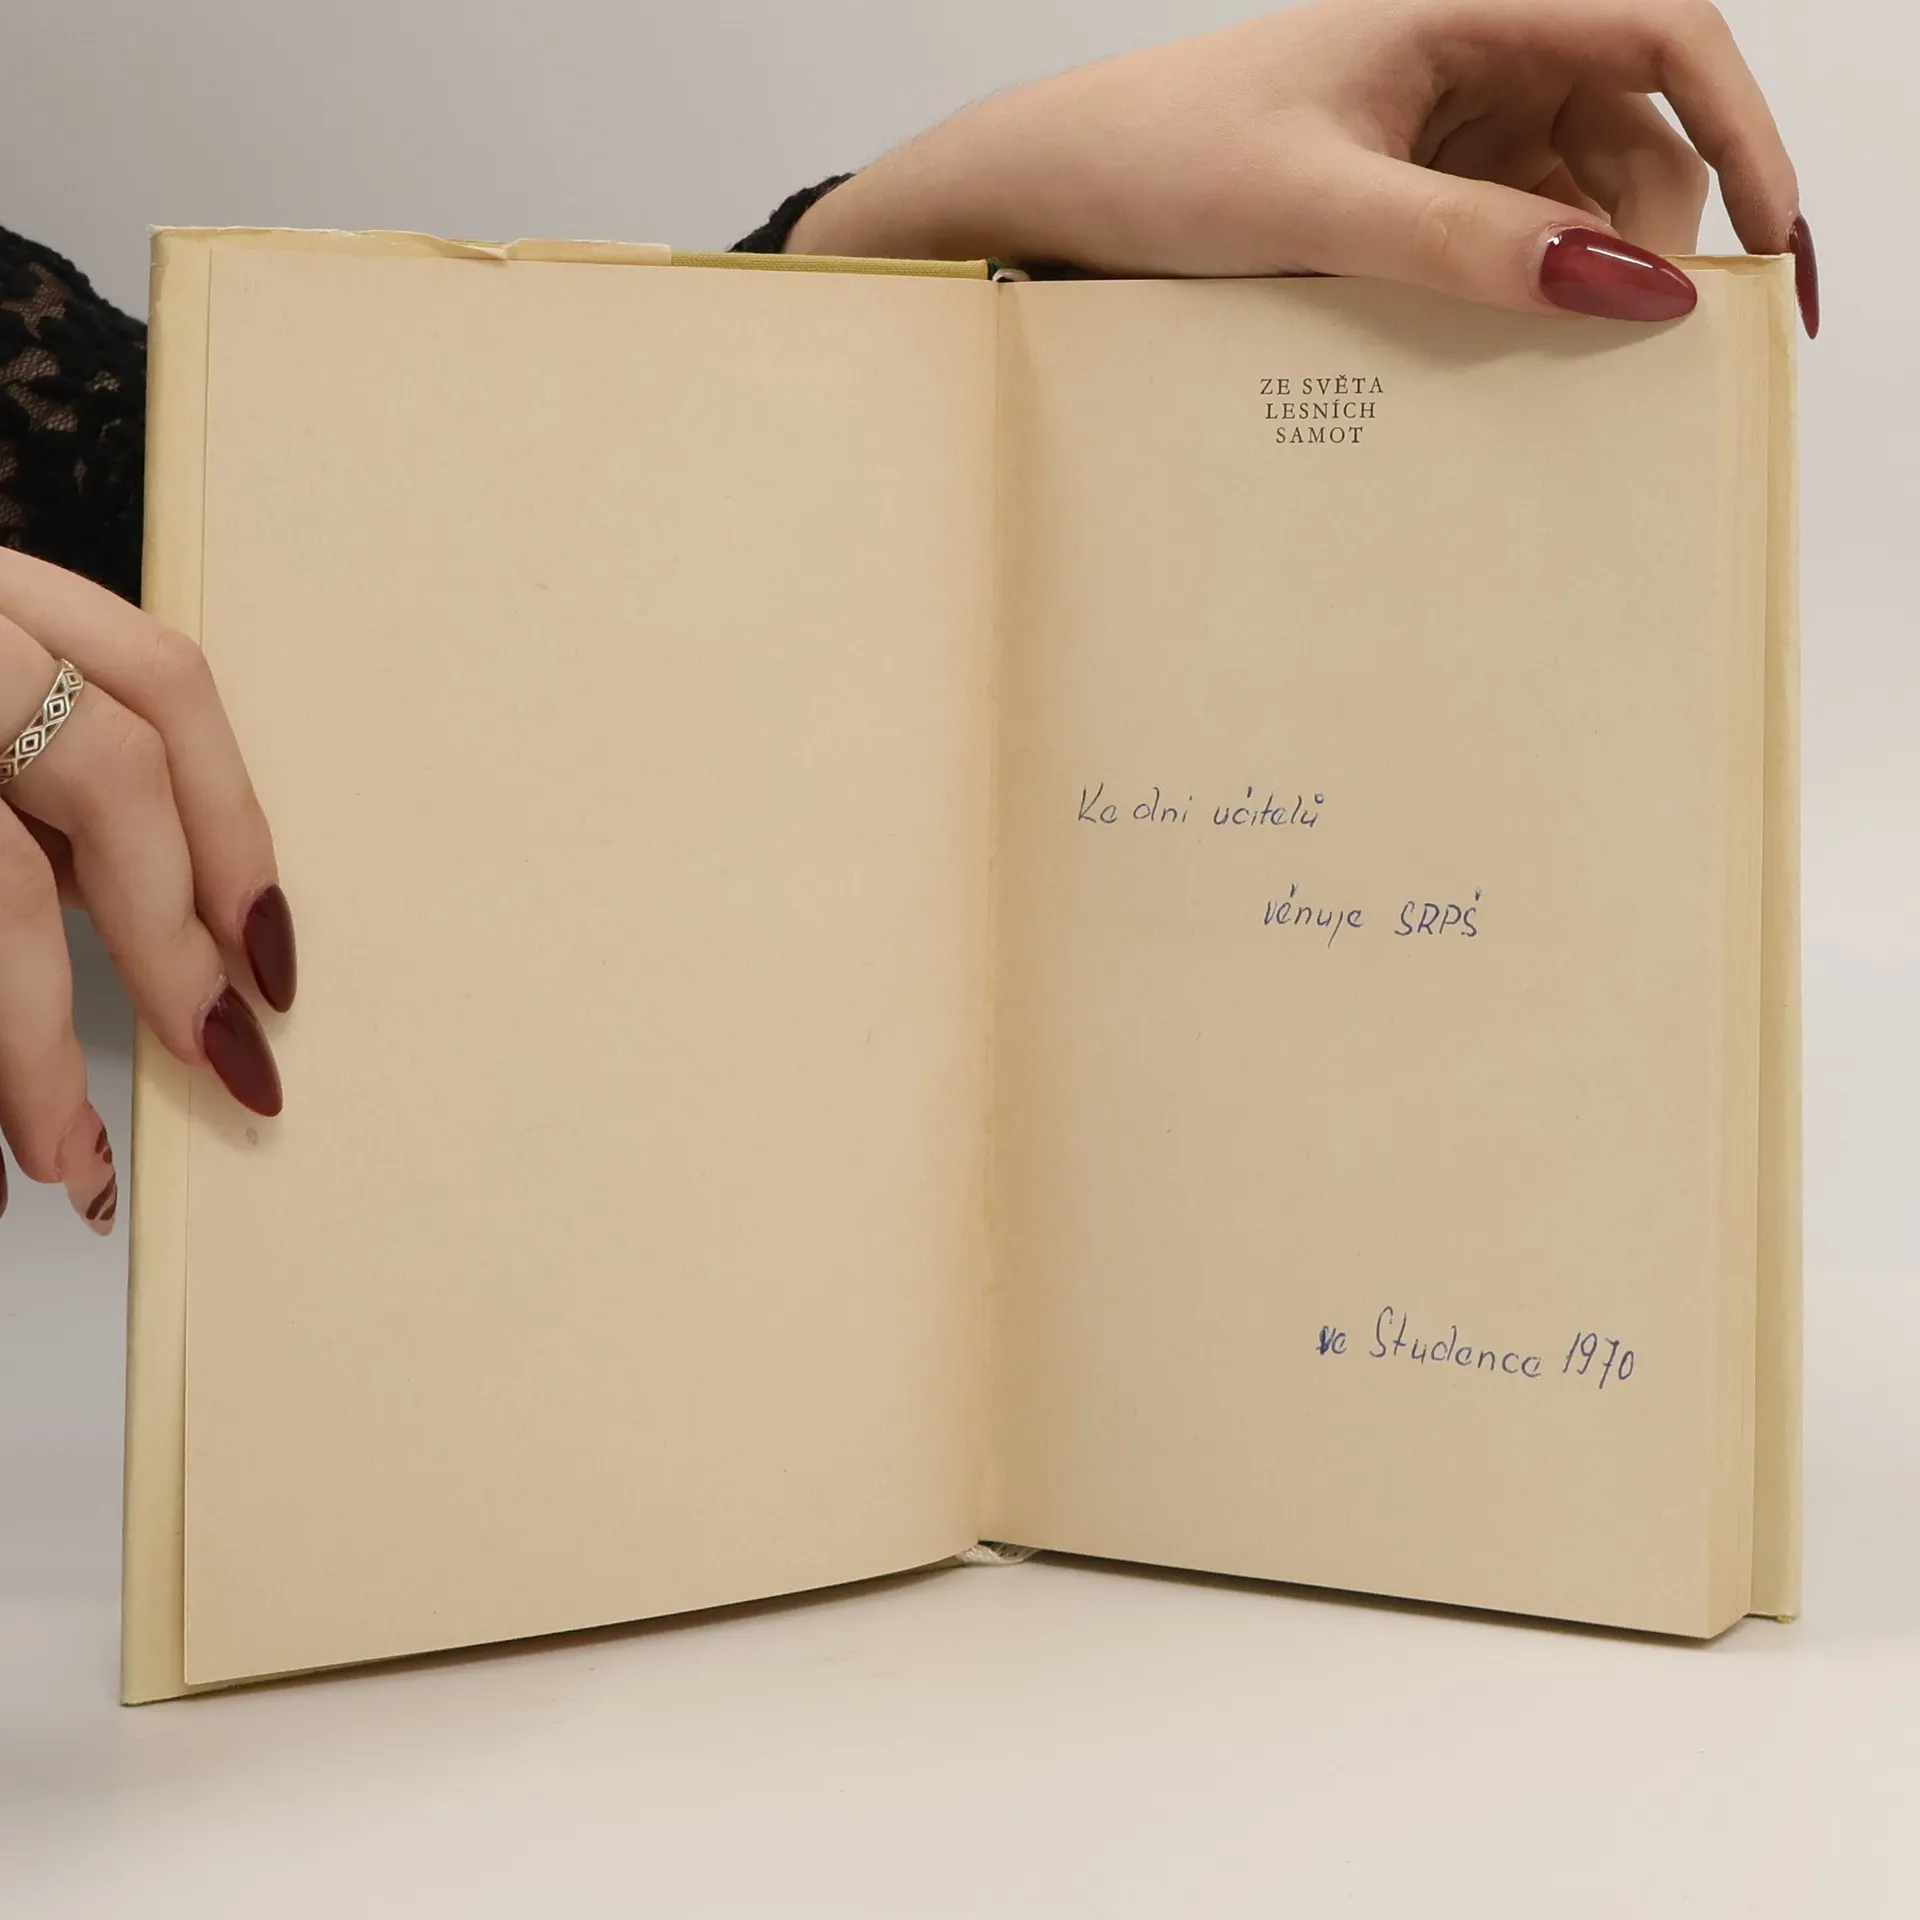 ZE SVĚTA
LESNÍCH
SAMOT
Ke dni učitelů
věnuje SRPŠ
ve Studence 1970